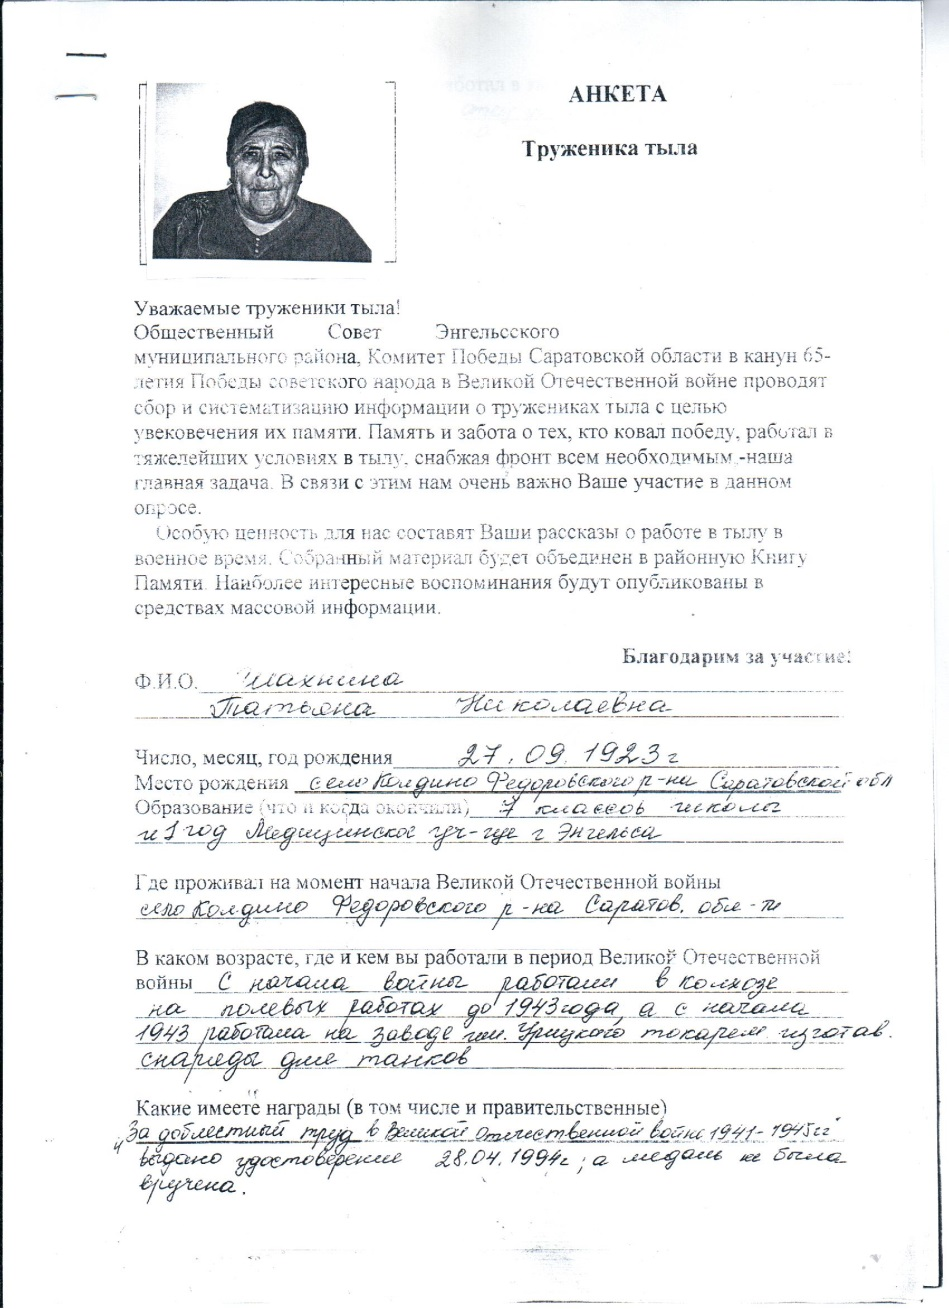 АНКЕТА
Труженика тыла
Уважаемые труженики тыла!
Общественный Совет Энгельсского
муниципального района, Комитет Победы Саратовской области в канун 65-
летия Победы советского народа в Великой Отечественной войне проводят
сбор и систематизацию информации о тружениках тыла с целью
увековечения их памяти. Память и забота о тех, кто ковал победу, работал в
тяжелейших условиях в тылу, снабжая фронт всем необходимым,-наша
главная задача. В связи с этим нам очень важно Ваше участие в данном
опросе.
Особую ценность для нас составят Ваши рассказы о работе в тылу в
военное время. Собранный материал будет объединен в районную Книгу
Памяти. Наиболее интересные воспоминания будут опубликованы в
средствах массовой информации.
Благодарим за участие!
Ф.И.О. Шахнина
Татьяна Николаевна
Число, месяц, год рождения 27.09.1923 г
Место рождения село Колдино Федоровского р-на Саратовской обл
Образование (что и когда окончили) 7 классов школы
и 1 год Медицинское уч-ще г Энгельса
Где проживал на момент начала Великой Отечественной войны
село Колдино Федоровского р-на Саратов. обл-ти
В каком возрасте, где и кем вы работали в период Великой Отечественной
войны С начала войны работали в колхозе
на полевых работах до 1943 года, а с начала
1943 работала на заводе им. Урицкого токарем изготав.
снаряды для танков
Какие имеете награды (в том числе и правительственные)
"За доблестный труд в Великой Отечественной войне 1941-1945 гг"
выдано удостоверение 28.04.1994г; а медаль не была
вручена.